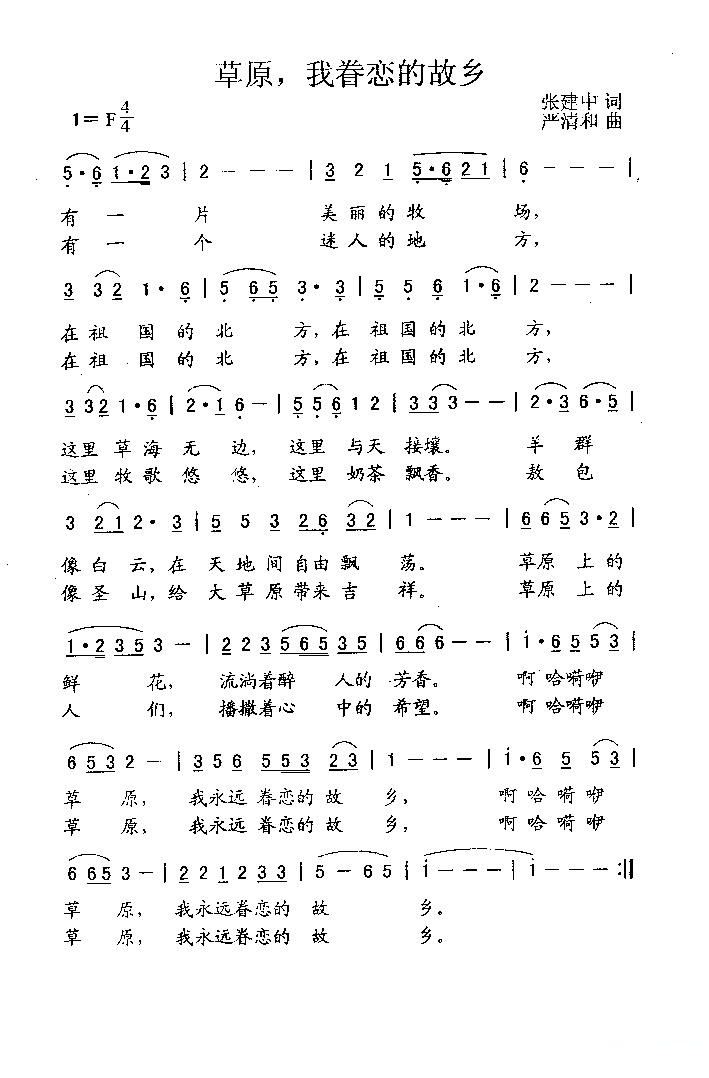 草原，我眷恋的故乡
张建中 词
1=F 4/4
严清和 曲
5·6 1·2 3 | 2 - - - | 3 2 1 5·6 2 1 | 6 - - - |
有一 片 美丽的牧 场，
有一 个 迷人的地 方，
3 3 2 1· 6 | 5 6 5 3· 3 | 5 5 6 1·6 | 2 - - - |
在祖 国 的 北 方，在 祖国的北 方，
在祖 国 的 北 方，在 祖国的北 方，
3 3 2 1·6 | 2·1 6 - | 5 5 6 1 2 | 3 3 3 - - | 2·3 6·5 |
这里 草 海 无 边， 这里 与天 接壤。 羊 群
这里 牧 歌 悠 悠， 这里 奶茶 飘香。 敖 包
3 2 1 2· 3 | 5 5 3 2 6 3 2 | 1 - - - | 6 6 5 3·2 |
像 白 云，在 天地间自由飘 荡。 草原 上的
像 圣 山，给 大草原带来吉 祥。 草原 上的
1·2 3 5 3 - | 2 2 3 5 6 5 3 5 | 6 6 6 - - | 1·6 5 5 3 |
鲜 花， 流淌着醉 人的 芳香。 啊 哈嗬咿
人 们， 播撒着心 中的 希望。 啊 哈嗬咿
6 5 3 2 - | 3 5 6 5 5 3 2 3 | 1 - - - | 1·6 5 5 3 |
草 原， 我永远 眷恋的 故 乡， 啊 哈 嗬 咿
草 原， 我永远 眷恋的 故 乡， 啊 哈 嗬 咿
6 6 5 3 - | 2 2 1 2 3 3 | 5 - 6 5 | 1 - - - | 1 - - - :||
草 原， 我永远眷恋的 故 乡。
草 原， 我永远眷恋的 故 乡。